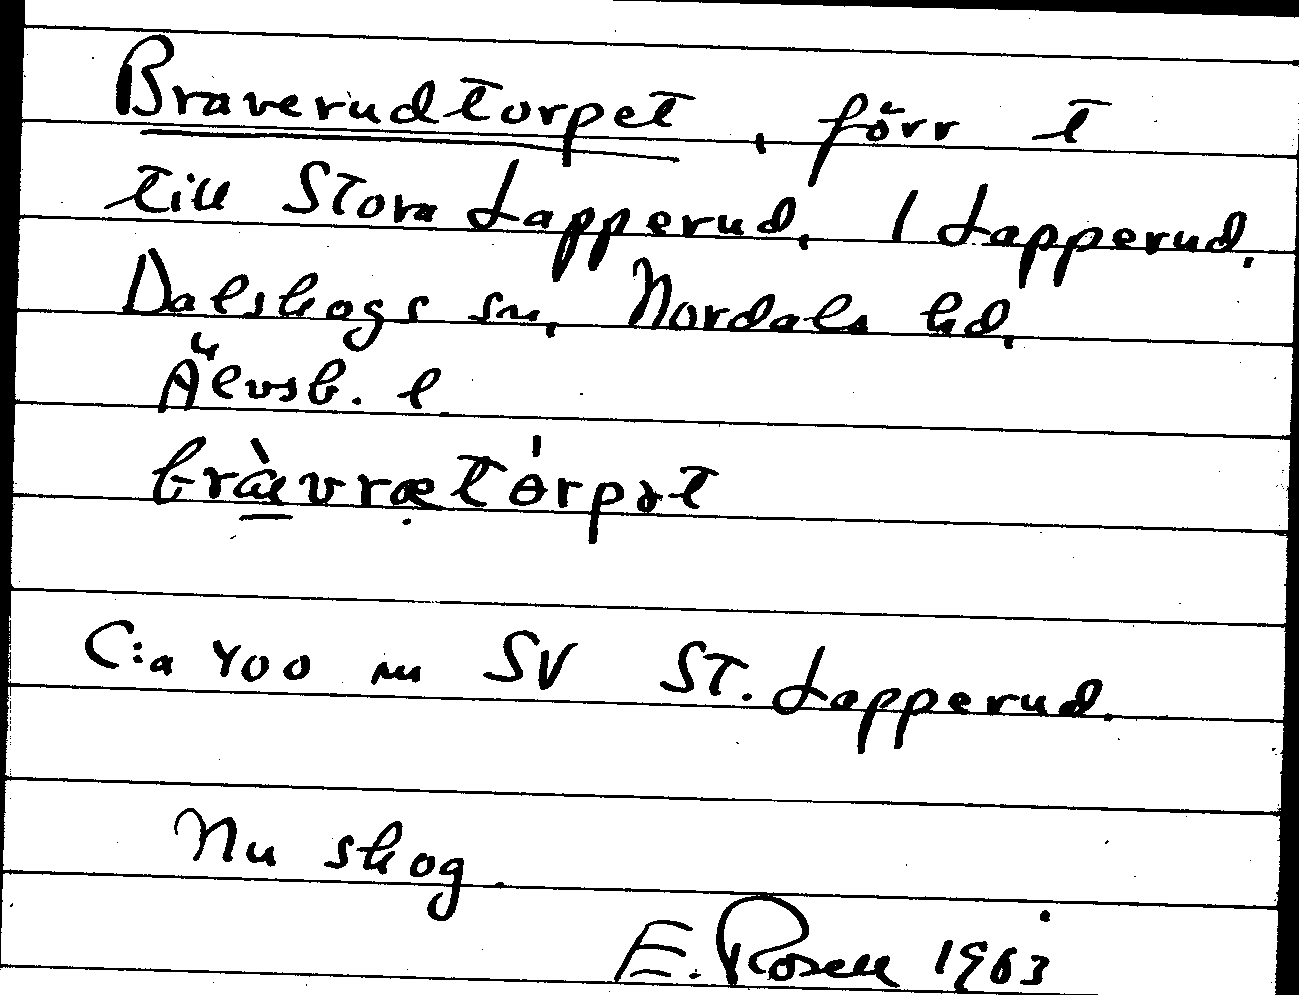 Braverudtorpet, förr t
till Stora Lapperud, 1 Lapperud.
Dalskogs sn, Nordals hd,
Älvsb. l
bræ̀vrætórpət
C:a 400 m SV St. Lapperud.
Nu skog.
E. Rosell 1963